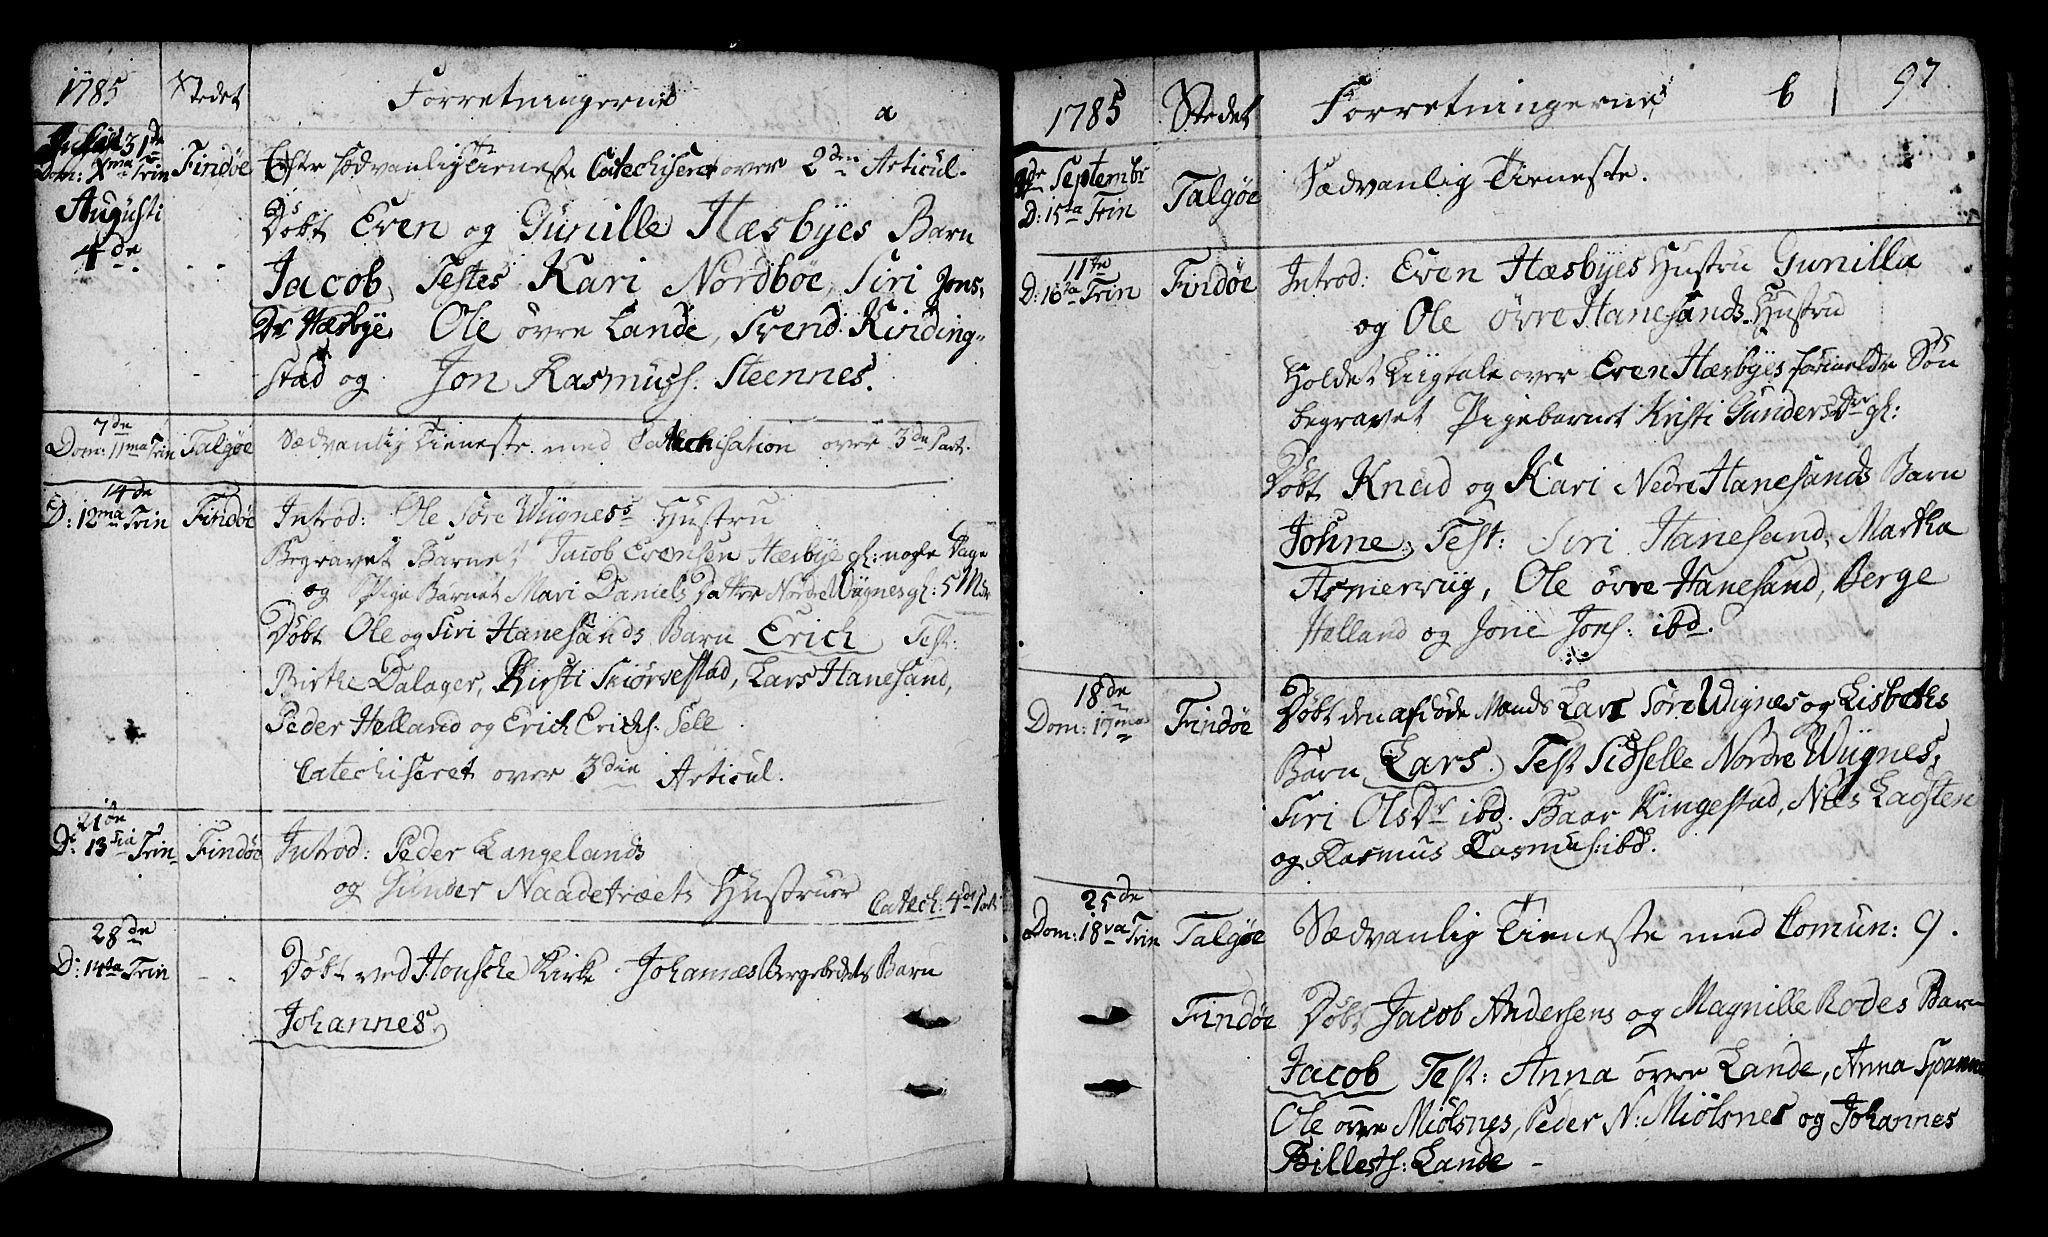 1785 Stedet Forretningerne a
Julii 31de
Dom: Xma Trin Findøe Efter sædvanlig Tieneste Catechiseret over 2den Articul.
Augusti
4de
Døbt Even og Gunille Hæsbyes Barn
Jacob, Testes Kari Nordbøe, Siri Jons
Dr Hæsbye, Ole övre Lande, Svend Kinding-
stad og Jon Rasmuss. Steennes.
7de
Dom: 11ma Trin Talgøe Sædvanlig Tieneste med Catechisation over 3de Part.
14de
D: 12ma Trin Findøe Introd: Ole Søre Wiignes Hustru
Begravet Barnet Jacob Evensen Hæsbye gl: nogle Dage
og Pige Barnet Mari Daniels Datter Nordre Wiignes gl: 5 Mdr
Døbt Ole og Siri Hanesands Barn Erich, Test:
Birthe Dalager, Kirsti Skiørvestad, Lars Hanesand,
Peder Helland og Erich Erichs. Selle
Catechiseret over 3die Articul.
21de
D: 13tia Trin Findøe Introd: Peder Langelands
og Gunder Naadetræets Hustruer Catech: 4de Part
28de
D: 14ta Trin Døbt ved Housche Kirke Johannes Bergebedets Barn
Johannes.
1785 Stedet Forretningerne b 97
4de Septembr
D: 15ta Trin Talgøe Sædvanlig Tieneste.
11te
D: 16ta Trin Findøe Introd: Even Hæsbyes Hustru Gunilla
og Ole övre Hanesands Hustru
Holdet Liigtale over Even Hæsbyes formeldte Søn
begravet Pigebarnet Kristi Gunders Dr gl:
Døbt Knud og Kari Nedre Hanesands Barn
Johne, Test: Siri Hanesand, Martha
Asmerviig, Ole övre Hanesand, Berge
Helland og Jone Jons: ibd.
18de
Dom: 17ma Findøe Døbt den afdöde Mands Lars Söre Wiignes og Lisbeths
Barn Lars. Test Sidselle Nordre Wiignes,
Siri Ols Dr ibd. Baar Kingestad, Niels Ladsten
og Rasmus Rasmus: ibd.
25de
Dom: 18va Trin Talgøe Sædvanlig Tieneste med Comun: 9.
Findøe Døbt Jacob Andersens og Magnille Rodes Barn
Jacob Test: Anna övre Lande, Anna Spanne
Ole övre Miölsnes, Peder N: Miölsnes og Johannes
Billests: Lande -